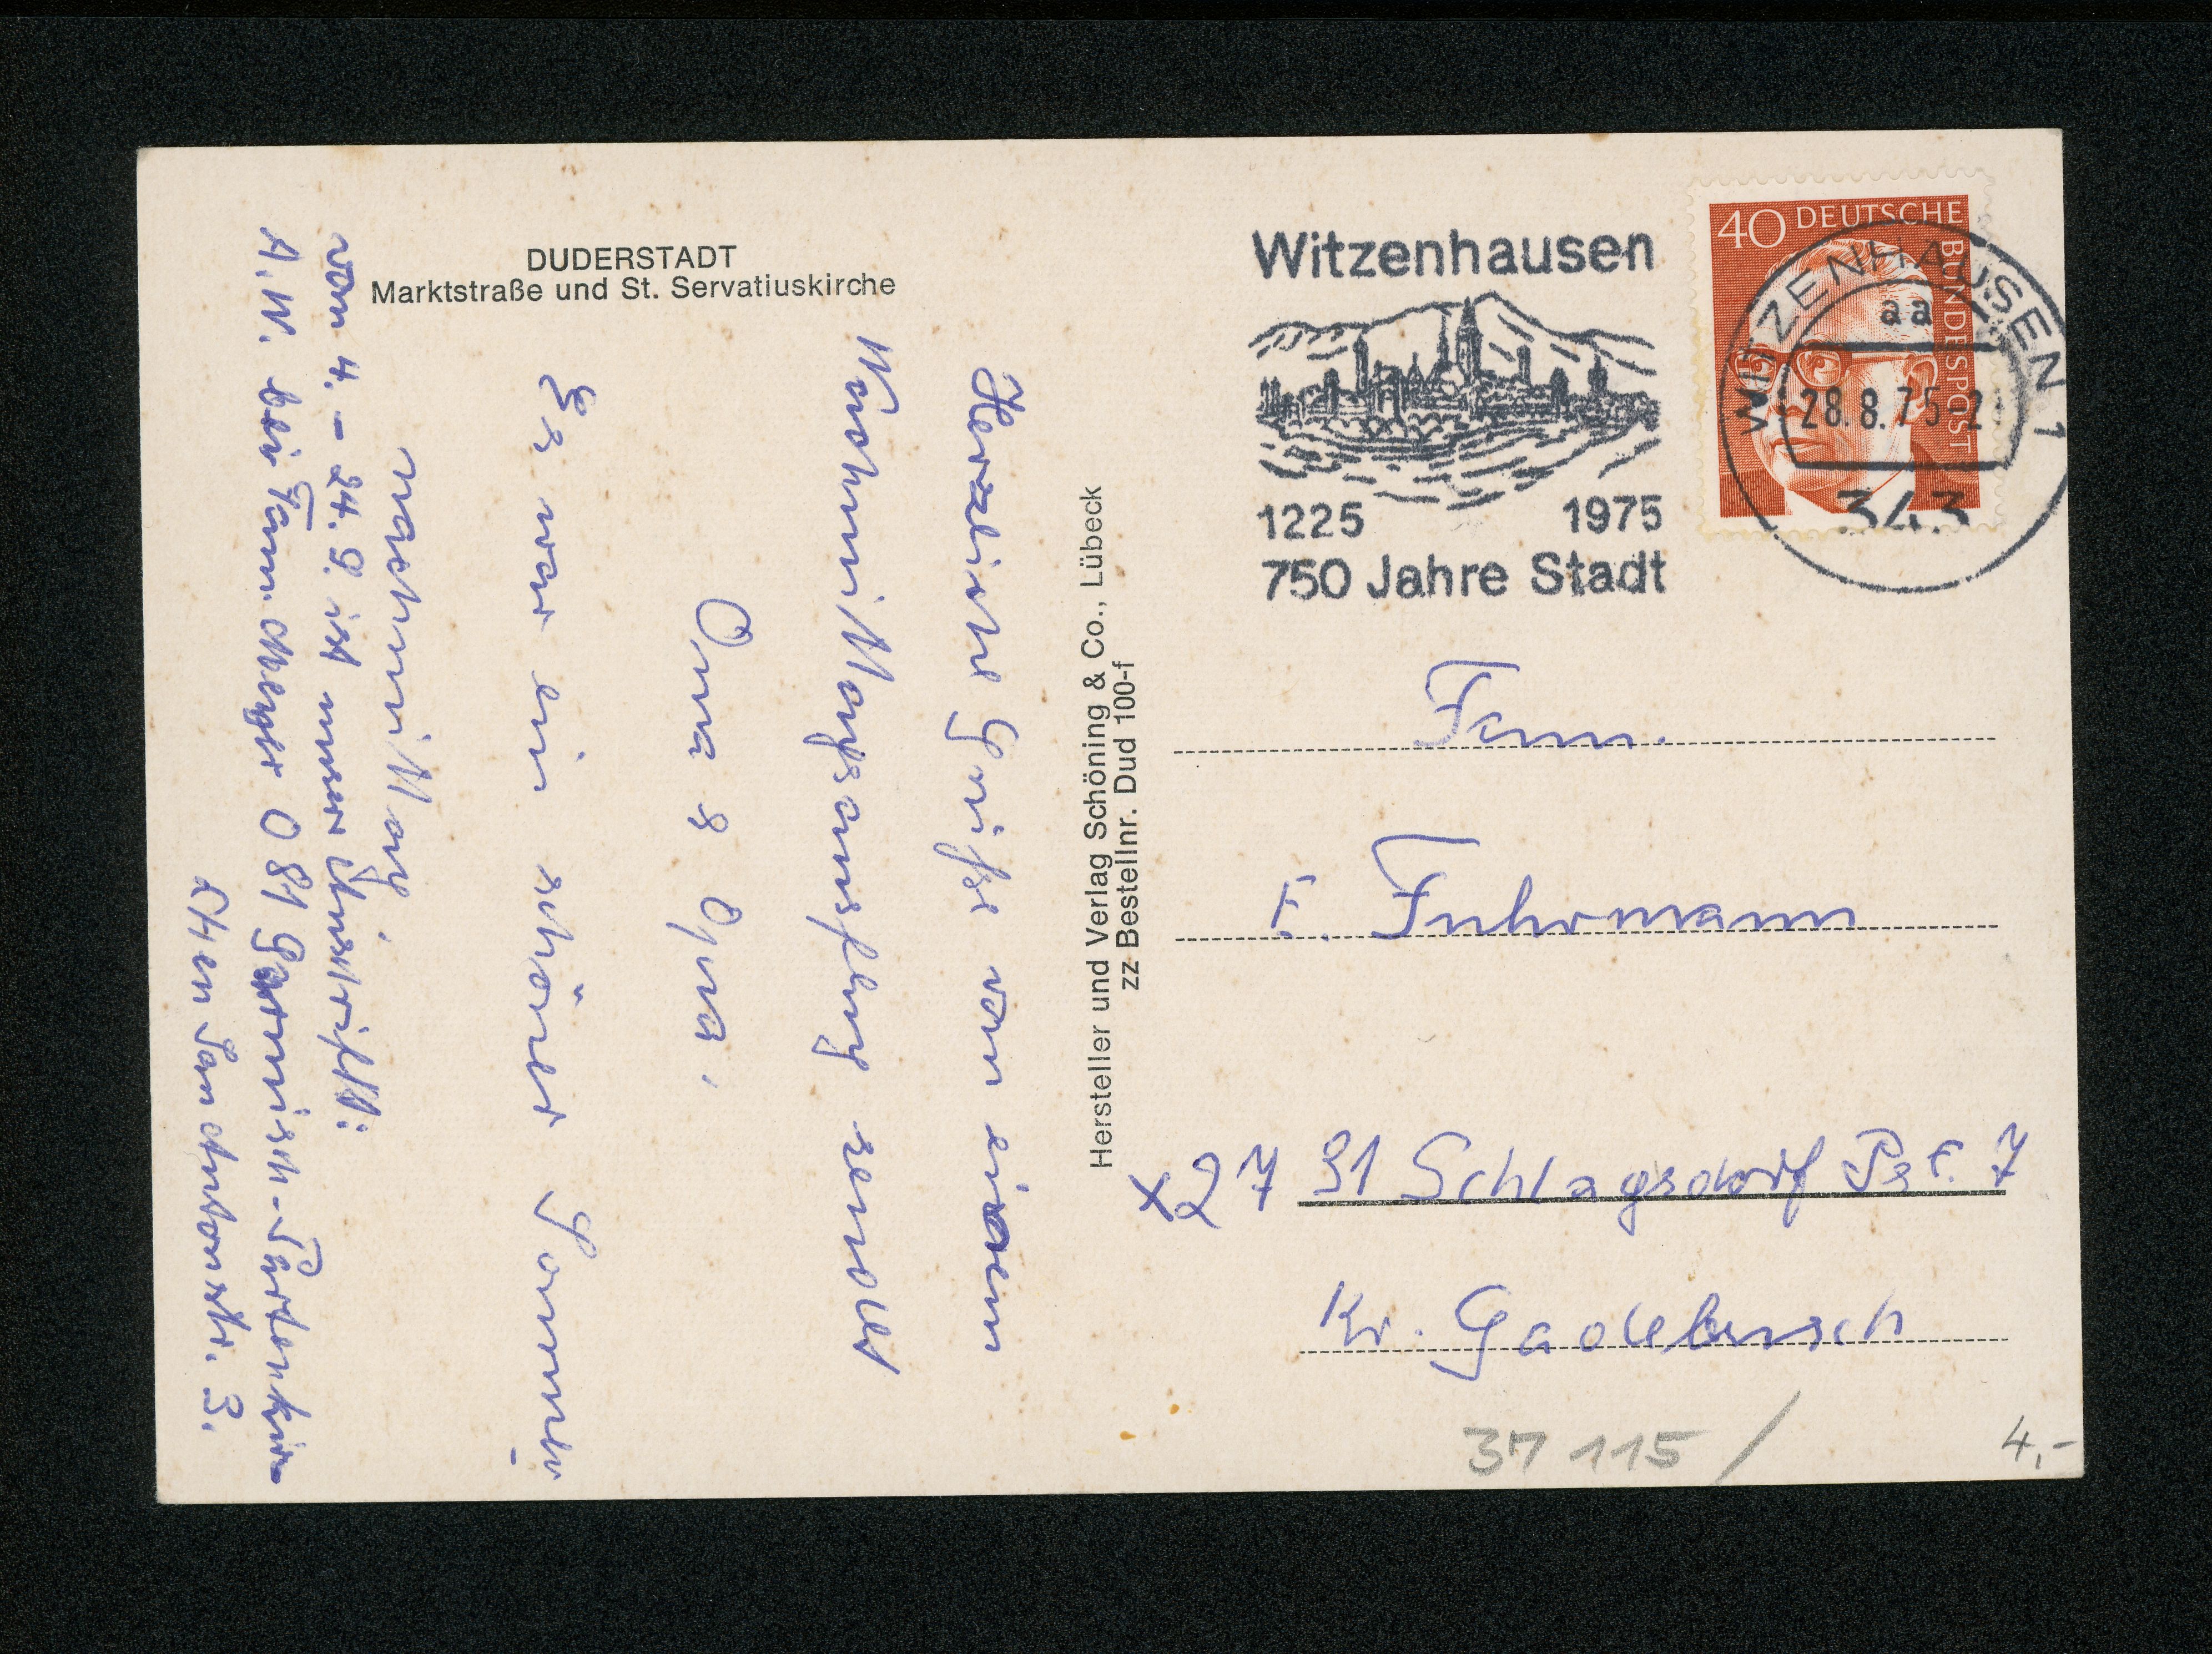 DUDERSTADT
Marktstraße und St. Servatiuskirche
Herzliche Grüße von einem
Nachmittagsausflug sendet
Oma & Opa.
Es war ein schöner Sonnen-
nachmittag.
von 4. - 24. 9. ist unsere Anschrift:
A. W. bei Fam.
081 Garmisch-Partenkir-
chen
3.
Hersteller und Verlag Schöning & Co., Lübeck
zz Bestellnr. Dud 100-f
Witzenhausen
1225 1975
750 Jahre Stadt
40 DEUTSCHE
BUNDESPOST
WITZENHAUSEN 1
aa
28.8.75-2
343
Fam.
F. Fuhrmann
X27 31 Schlagsdorf 7
Kr. Gadebusch
37 115 /
4,-